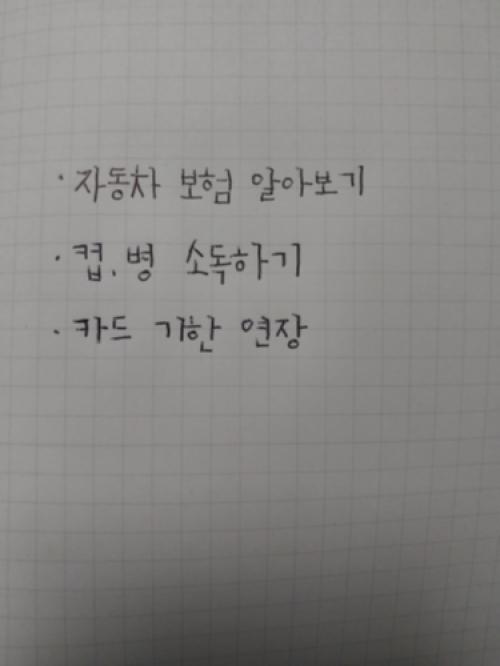 · 자동차 보험 알아보기
· 컵. 병 소독하기
· 카드 기한 연장